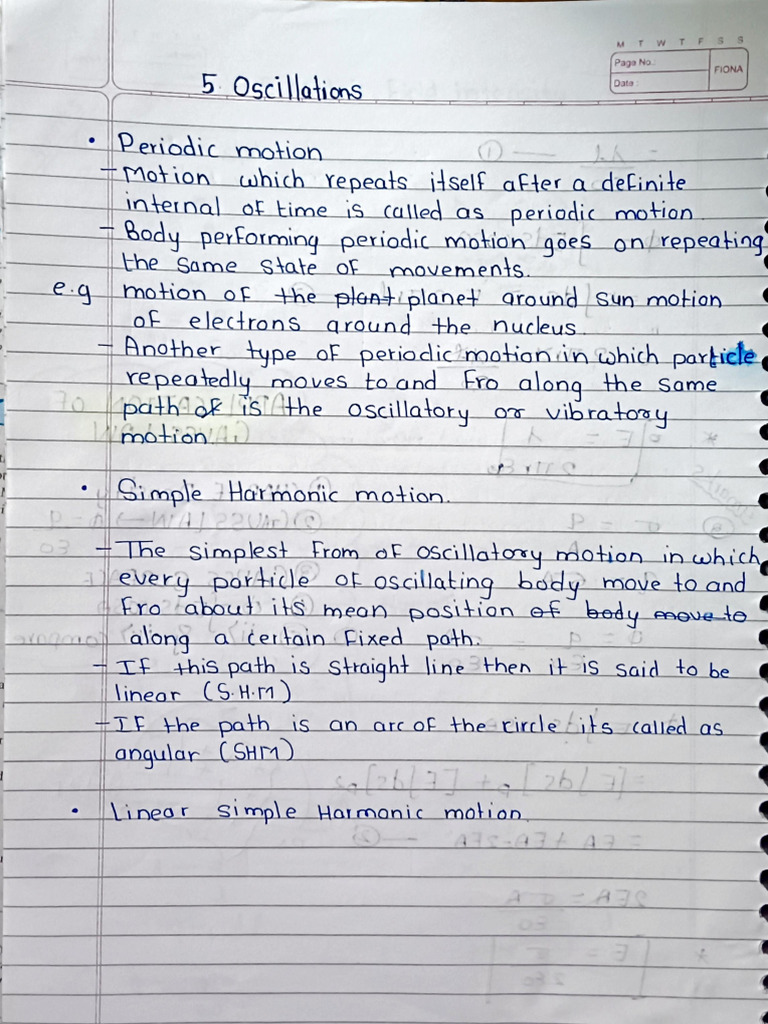 M T W T F S S
Page No.:
FIONA
Date:
5. Oscillations
• Periodic motion
- Motion which repeats itself after a definite
internal of time is called as periodic motion
- Body performing periodic motion goes on repeating
the same state of movements.
e.g motion of the plant planet around sun motion
of electrons around the nucleus
- Another type of periodic motion in which particle
repeatedly moves to and fro along the same
path of is the oscillatory or vibratory
motion.
• Simple Harmonic motion.
- The simplest from of oscillatory motion in which
every particle of oscillating body move to and
fro about its mean position of body move to
along a certain fixed path.
- If this path is straight line then it is said to be
linear (S.H.M)
- If the path is an arc of the circle its called as
angular (SHM)
• Linear simple Harmonic motion.